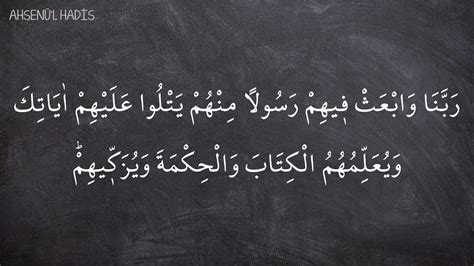 AHSENÜ'L HADİS
رَبَّنَا وَابْعَثْ ف۪يهِمْ رَسُولًا مِنْهُمْ يَتْلُوا عَلَيْهِمْ اٰيَاتِكَ
وَيُعَلِّمُهُمُ الْكِتَابَ وَالْحِكْمَةَ وَيُزَكّ۪يهِمْۜ